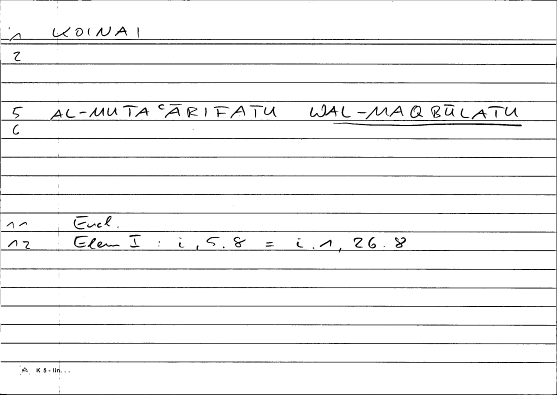 1 KOINAI
2
5 AL-MUTAᶜĀRIFATU WAL-MAQBŪLATU
6
11 Eucl.
12 Elem I : i, 5.8 = i.1, 26.8
K 5 - lin...